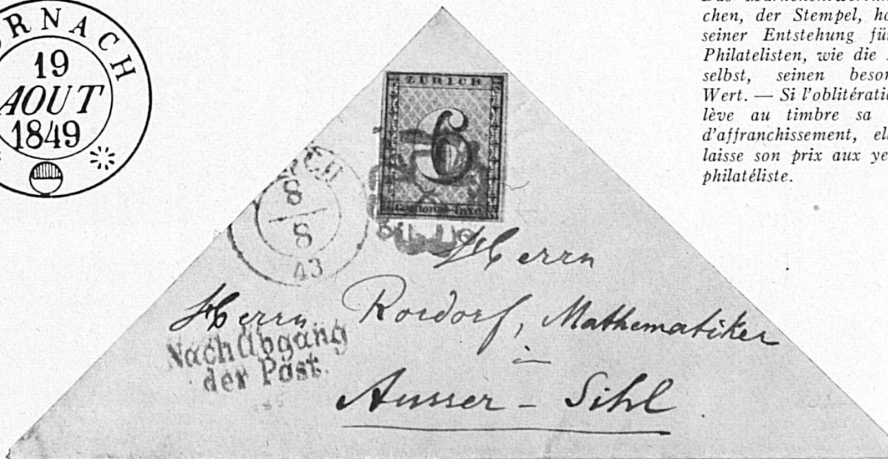 ORNACH
19
AOUT
1849
chen, der Stempel,
seiner Entstehung
Philatelisten, wie die
selbst, seinen
Wert. — Si
lève au timbre sa
d'affranchissement,
laisse son prix aux
philatéliste.
ZÜRICH
6
Cantonal-Taxe
CH
8
8
43
Herrn
Herrn Rordorf, Mathematiker
in
Ausser - Sihl
Nach Abgang
der Post.